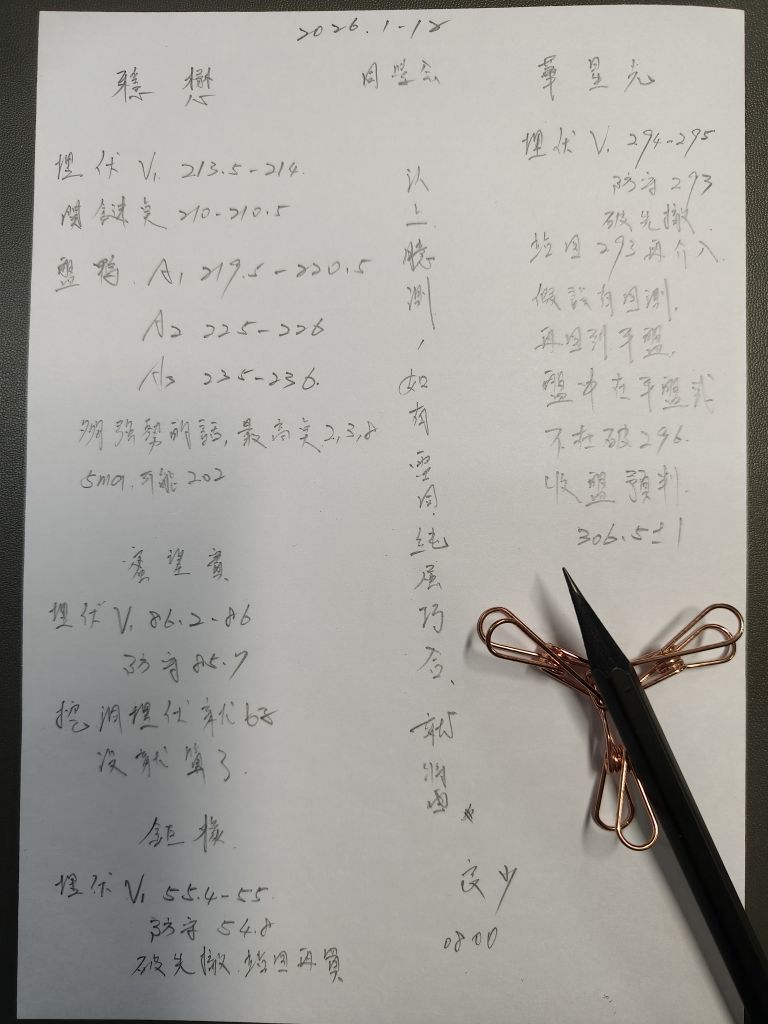 2026.1-12
聽懋
埋伏 V₁ 213.5-214.
關鍵點 210-210.5
盤鴨. A₁ 219.5-220.5
A₂ 225-226
A₃ 235-236.
強勢的話, 最高點2,3,8
5ma, 可能202
實
埋伏 V₁ 86.2-86
防守 85.7
挖洞埋伏就
沒就算了.
鉅橡.
埋伏 V₁ 55.4-55
防守 54.8
破先撤. 站回再買
同學会
以上臆測, 如有雷同. 純屬巧合、就
少
0800
華星光
埋伏 V₁ 294-295
防守 293
破先撤
站回 293再介入.
假設有回測,
再回到平盤,
盤中在平盤或
不在破296.
收盤預判.
306.5±1